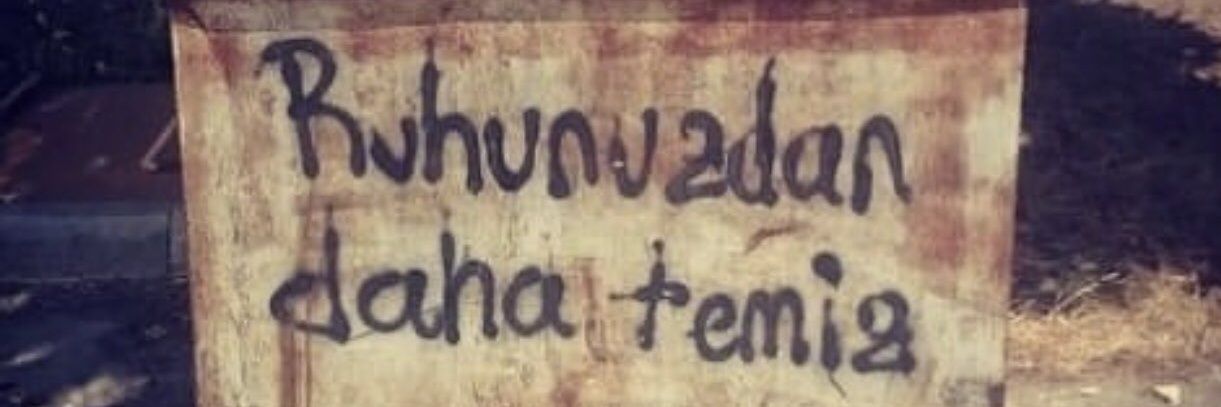 Ruhunuzdan
daha temiz